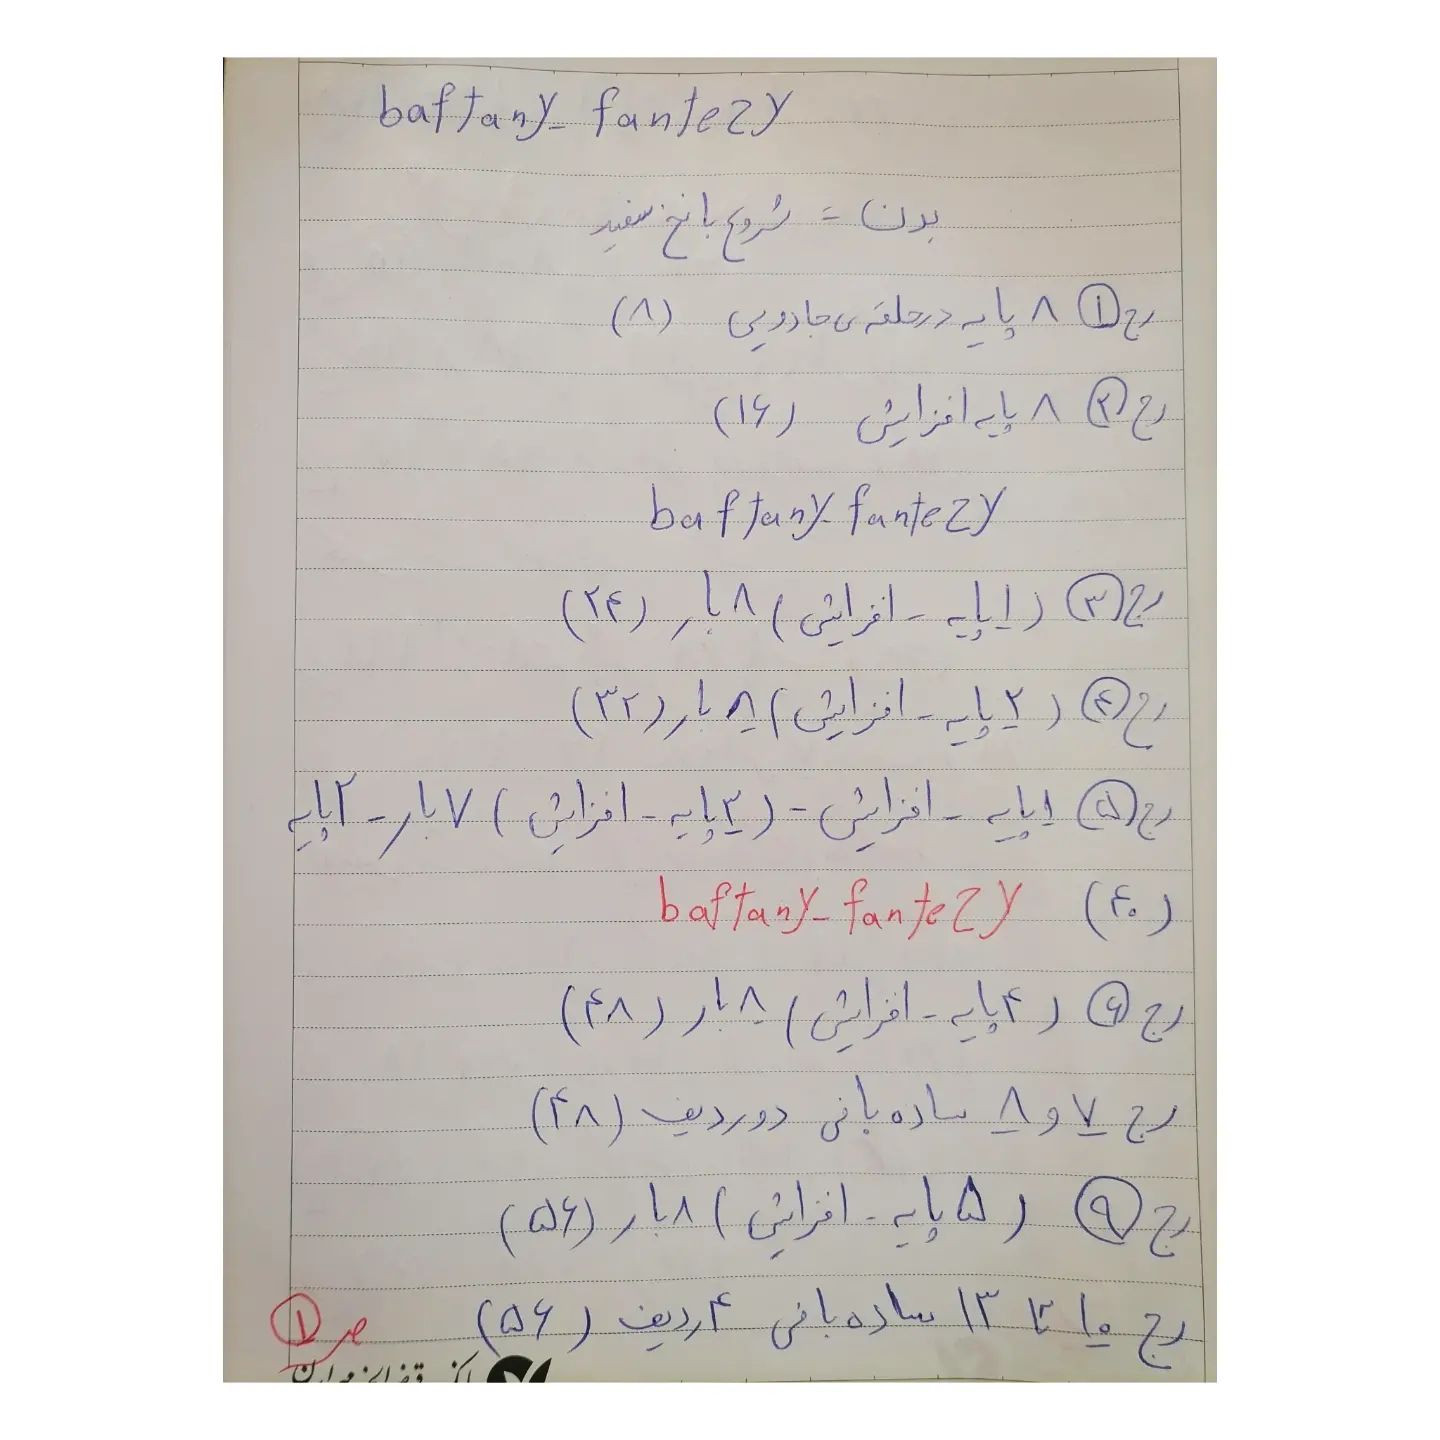 baftany_fantezy
بدن = شروع با نخ سفید
رج ۱ ۸ پایه در حلقه ی جادویی (۸)
رج ۲ ۸ پایه افزایش (۱۶)
baftany_fantezy
رج ۳ (۱ پایه - افزایش) ۸ بار (۲۴)
رج ۴ (۲ پایه - افزایش) ۸ بار (۳۲)
رج ۵ ۱ پایه - افزایش - (۳ پایه - افزایش) ۷ بار - ۲ پایه
(۴۰) baftany_fantezy
رج ۶ (۴ پایه - افزایش) ۸ بار (۴۸)
رج ۷ و ۸ ساده بافی دو ردیف (۴۸)
رج ۹ (۵ پایه - افزایش) ۸ بار (۵۶)
رج ۱۰ تا ۱۳ ساده بافی ۴ ردیف (۵۶)
ص ۱